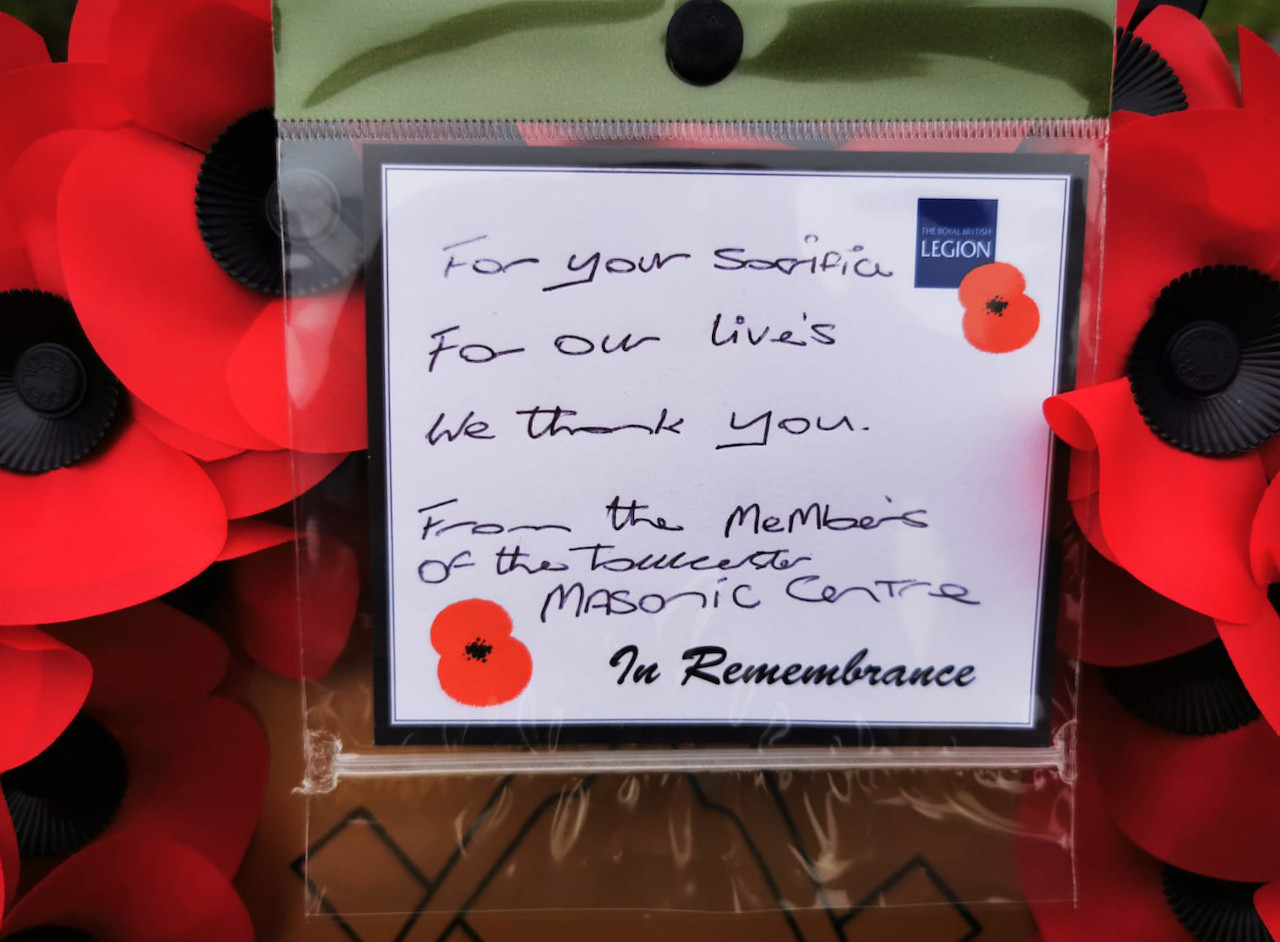 THE ROYAL BRITISH
LEGION
For your Sacrifice
For our Live's
We thank you.
From the MeMber's
of the Towcester
MASonic Centre
In Remembrance